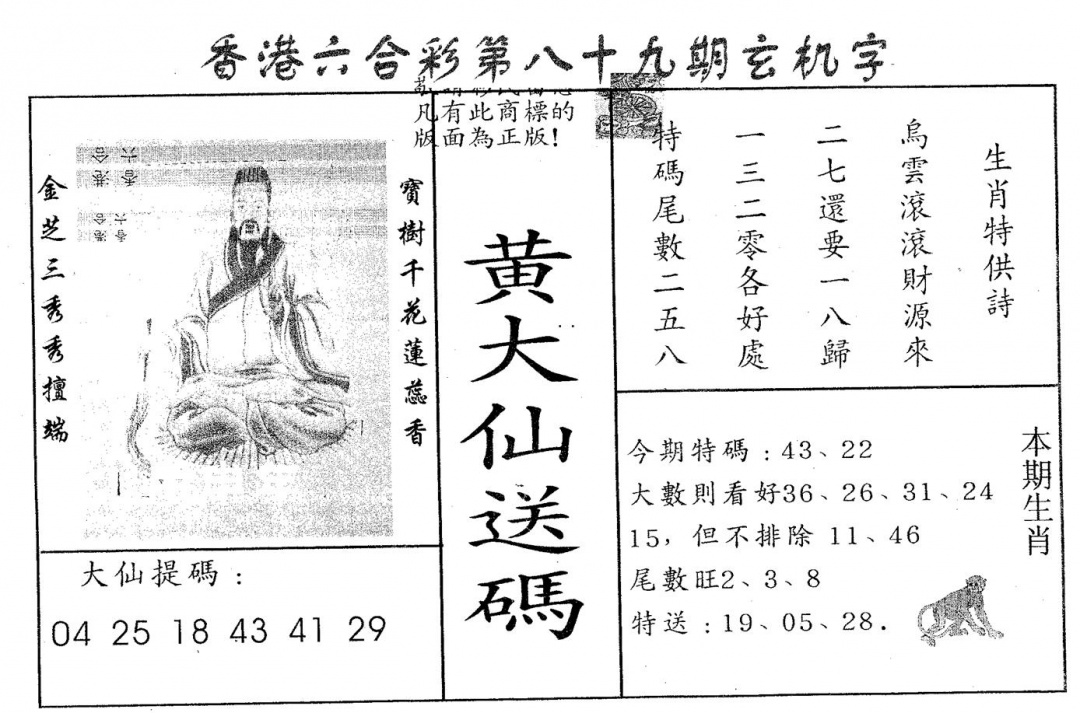 香港六合彩第八十九期玄机字
凡有此商標的
版面為正版!
生肖特供詩
烏雲滾滾財源來
二七還要一八歸
一三二零各好處
特碼尾數二五八
寶樹千花蓮蕊香
金芝三秀秀擅端
黄大仙送碼
大仙提碼:
04 25 18 43 41 29
本期生肖
今期特碼:43、22
大數則看好36、26、31、24
15,但不排除 11、46
尾數旺2、3、8
特送:19、05、28.